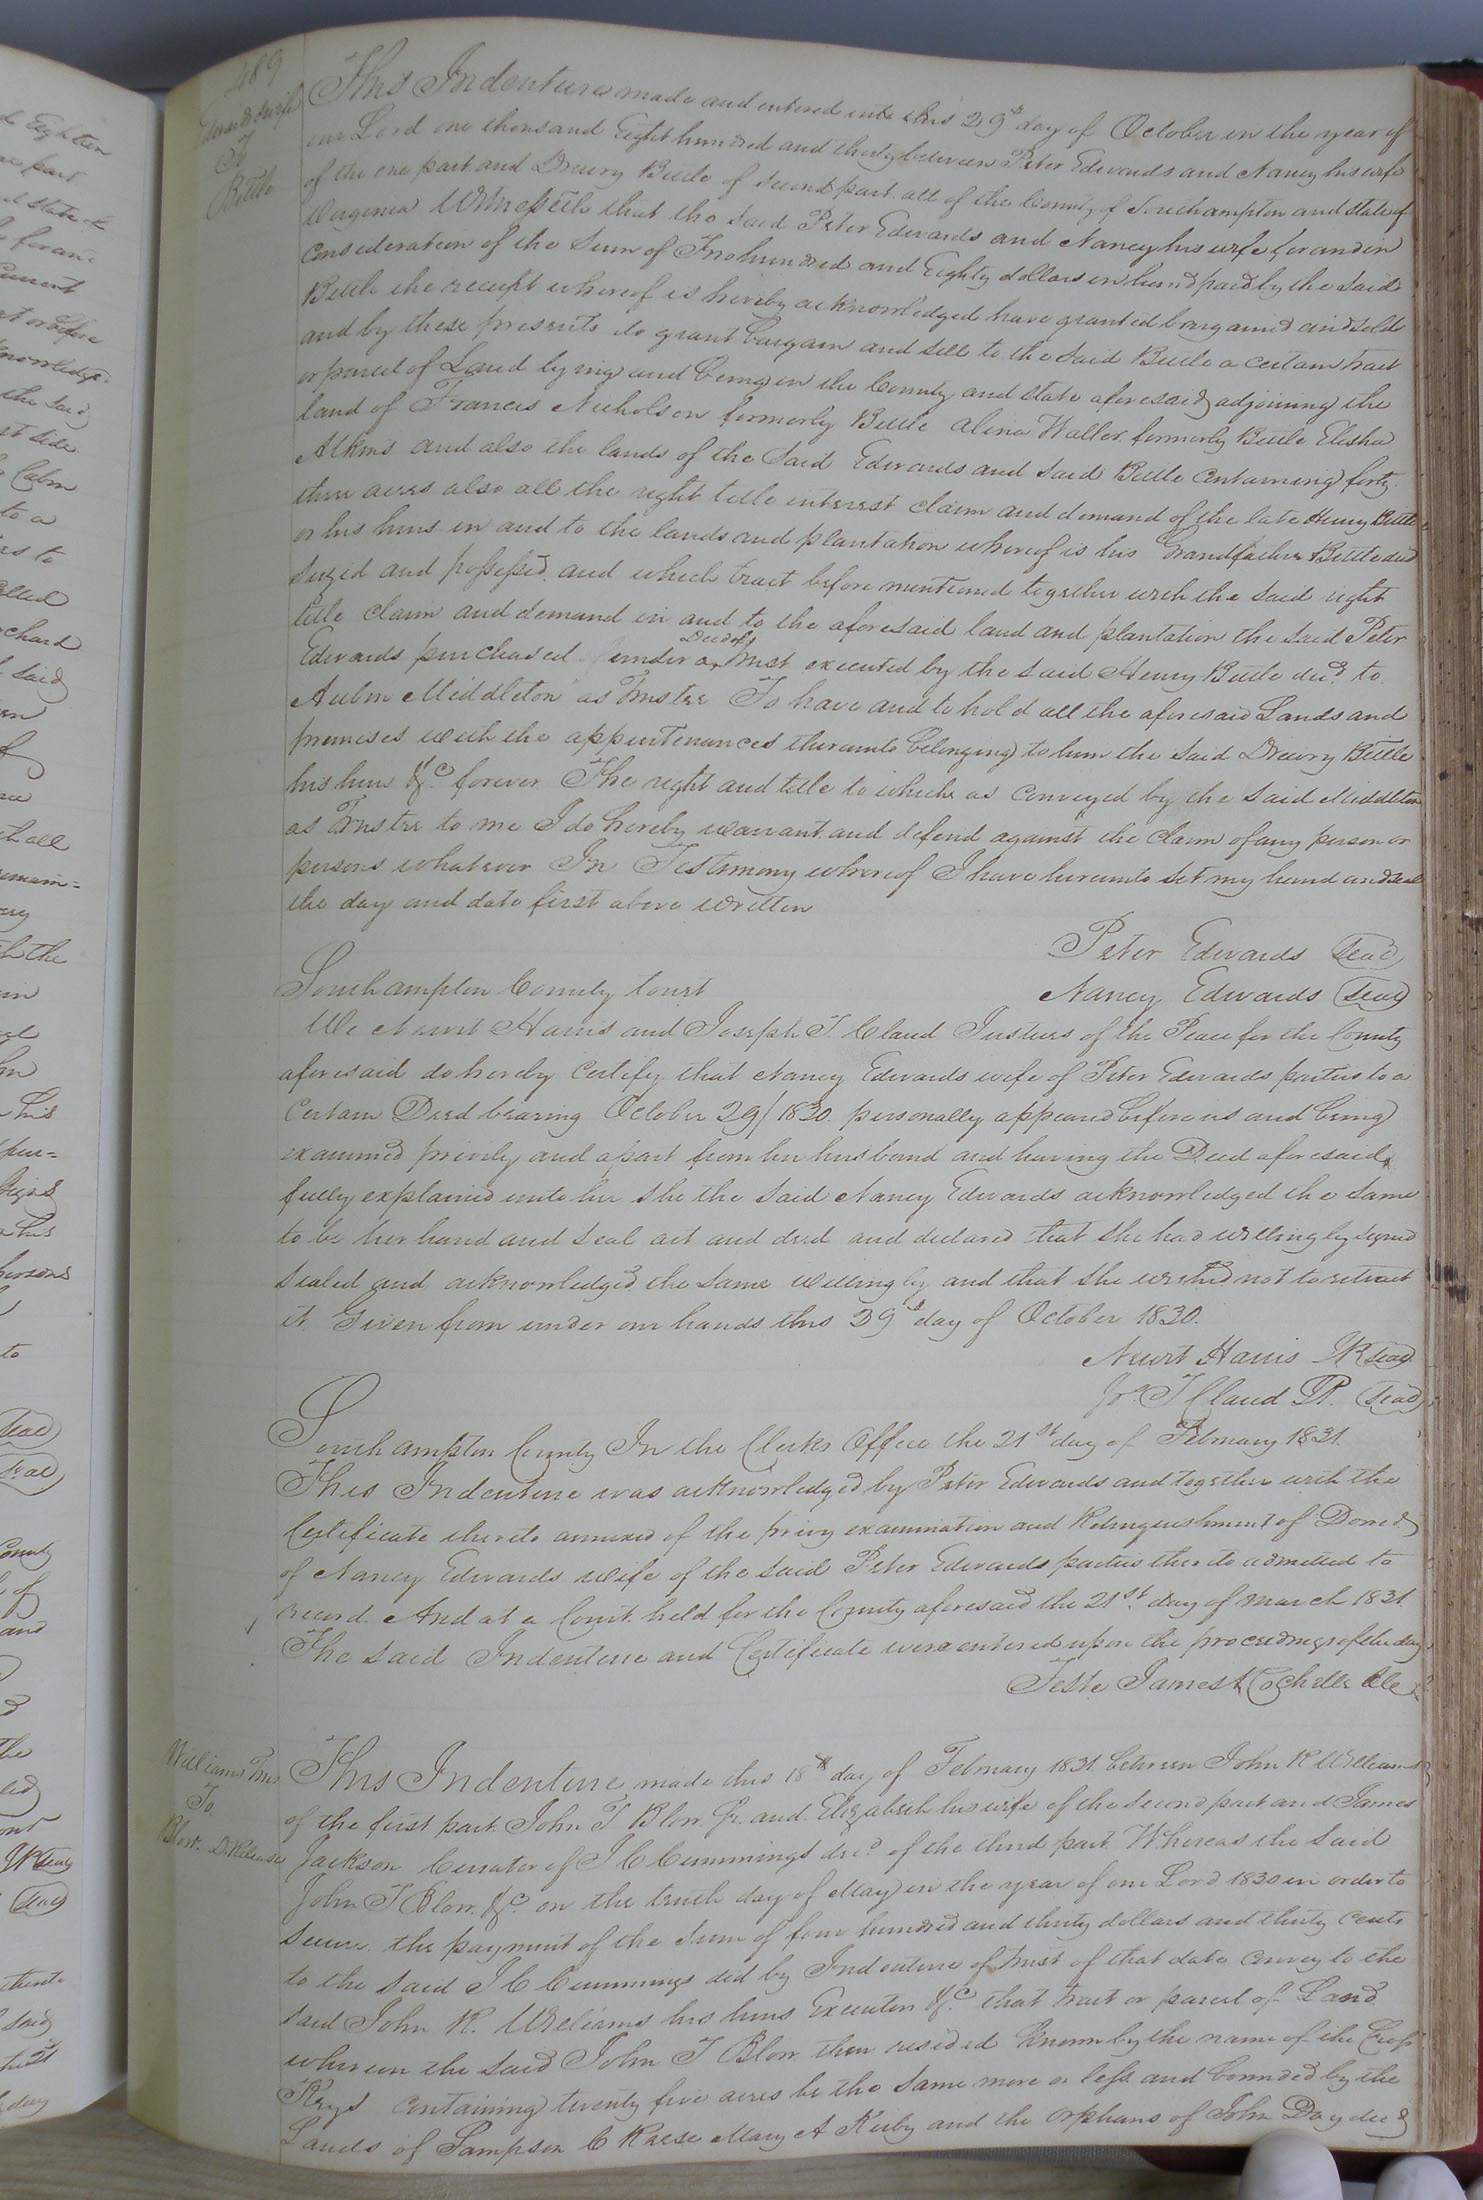 489
Edwards & wife
To
Bittle
This Indenture made and entered into this 29th day of October in the year of
our Lord one thousand Eight hundred and thirty between Peter Edwards and Nancy his wife
of the one part and Drewry Bittle of second part all of the County of Southampton and state of
Virginia Witnesseth that the said Peter Edwards and Nancy his wife for and in
consideration of the Sum of Two hundred and Eighty dollars in hand paid by the said
Bittle the receipt whereof is hereby acknowledged have granted bargained and sold
and by these presents do grant bargain and sell to the said Bittle a certain tract
or parcel of Land lying and being in the County and state aforesaid adjoining the
land of Francis Nicholson formerly Bittle Alina Waller formerly Bittle Elisha
Atkins and also the lands of the Said Edwards and said Bittle containing forty
three acres also all the right title interest claim and demand of the late Henry Bittle
or his heirs in and to the lands and plantation whereof is his Grandfather Bittle died
Seized and possessed. and which tract before mentioned together with the said right
title claim and demand in and to the aforesaid land and plantation the said Peter
Edwards purchased under a Deed of trust executed by the said Henry Bittle decd. to
Middleton as Trustee To have and to hold all the aforesaid Lands and
premises with the appurtenances thereunto belonging to him the said Drewry Bittle
his heirs &c. forever The right and title to which as conveyed by the said Middleton
as Trustee to me I do hereby warrant and defend against the claim of any person or
persons whatever In Testimony whereof I have hereunto set my hand and seal
the day and date first above written
Peter Edwards Seal
Nancy Edwards Seal
Southampton County Court
We Newit Harris and Joseph T. Claud Justices of the Peace for the County
aforesaid do hereby certify that Nancy Edwards wife of Peter Edwards parties to a
Certain Deed bearing October 29/1830. personally appeared before us and being
examined privily and apart from her husband and having the Deed aforesaid
fully explained unto her she the said Nancy Edwards acknowledged the same
to be her hand and seal act and deed and declared that she had willingly signed
sealed and acknowledged the same willingly and that she wished not to retract
it Given from under our hands this 29th day of October 1830.
Newit Harris JP Seal
Jos. T Claud JP. Seal
Southampton County In the Clerks Office the 21st day of February 1831.
This Indenture was acknowledged by Peter Edwards and together with the
Certificate thereto annexed of the privy examination and Relinquishment of Dower
of Nancy Edwards wife of the said Peter Edwards parties thereto admitted to
record. And at a Court held for the County aforesaid the 21st day of March 1831
The said Indenture and Certificate were entered upon the proceedings of the day
Teste James Rochelle Cle
Williams Trus.
To
Blow. D. Release
This Indenture made this 18th day of February 1831. between John R Williams
of the first part John T Blow Jr. and Elizabeth his wife of the second part and James
Jackson Curator of J C Cummings decd. of the third part Whereas the said
John T Blow. &c. on the tenth day of May in the year of our Lord 1830 in order to
secure the payment of the sum of four hundred and thirty dollars and thirty cents
to the said J C Cummings did by Indenture of trust of that date convey to the
said John R. Williams his heirs Executors &c. that tract or parcel of Land
whereon the said John T Blow then resided known by the name of the Cross
Keys containing twenty five acres be the same more or less and bounded by the
Lands of Sampson C Reese Mary A Kirby and the orphans of John Day decd